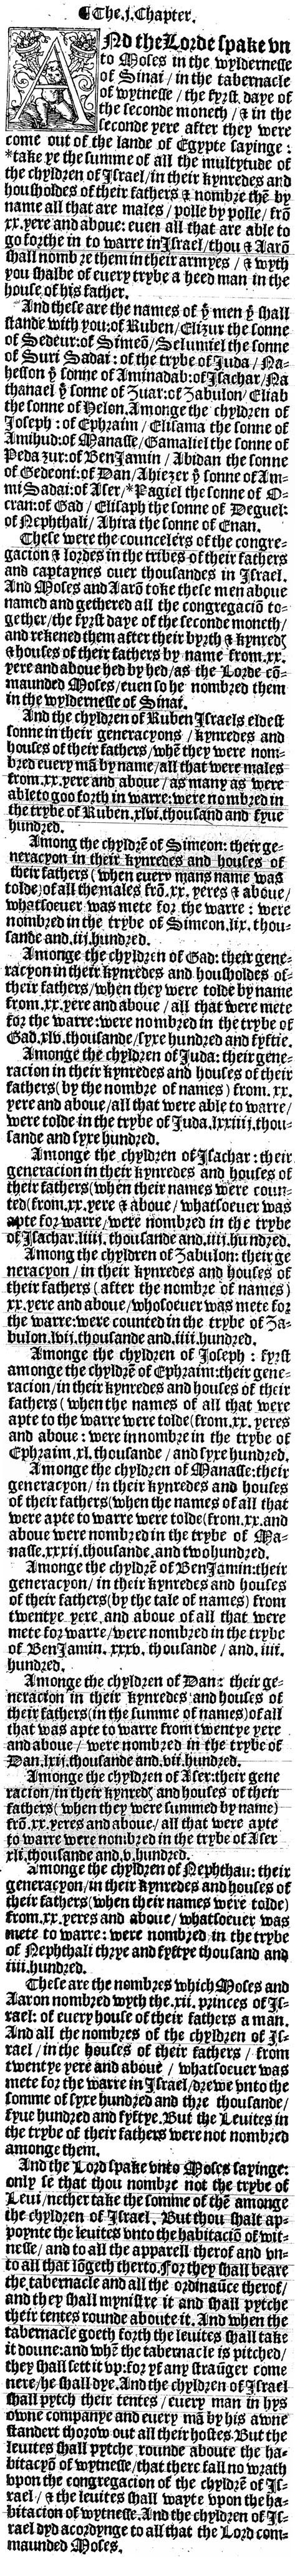 ¶The .j. Chapter.
ANd the Lorde spake vn
to Moses in the wyldernesse
of Sinai / in the tabernacle
of wytnesse / the fyrst daye of
the seconde moneth / & in the
seconde yere after they were
come out of the lande of Egypte sayinge :
*take ye the summe of all the multytude of
the chyldren of Israel / in their kynredes and
housholdes of their fathers & nombre thē by
name all that are males / polle by polle / frō
xx. yere and aboue: euen all that are able to
go forthe in to warre in Israel / thou & Aarō
shall nombre them in their armyes / & wyth
you shalbe of euery trybe a heed man in the
house of his father.
And these are the names of yͤ men yͭ shall
stande with you: of Ruben / Elizur the sonne
of Sedeur: of Simeō / Selumiel the sonne
of Suri Sadai : of the trybe of Juda / Na-
hesson yͤ sonne of Aminadab: of Isachar / Na
thanael yͤ sonne of Zuar: of Zabulon / Eliab
the sonne of Helon. Amonge the chyldren of
Joseph : of Ephraim / Elisama the sonne of
Amihud: of Manasse / Gamaliel the sonne of
Peda zur: of BenJamin / Abidan the sonne
of Gedeoni: of Dan / Ahiezer yͤ sonne of Am-
mi Sadai: of Aser / *Pagiel the sonne of O-
cran: of Gad / Elisaph the sonne of Deguel:
of Nephthali / Ahira the sonne of Enan.
These were the councelers of the congre-
gacion & lordes in the tribes of their fathers
and captaynes ouer thousandes in Israel.
And Moses and Aarō toke these men aboue
named and gethered all the congregaciō to-
gether / the fyrst daye of the seconde moneth /
and rekened them after their byrth & kynredꝭ
& houses of their fathers by name from .xx.
yere and aboue hed by hed / as the Lorde cō-
maunded Moses / euen so he nombred them
in the wyldernesse of Sinai.
And the chyldren of Ruben Israels eldest
sonne in their generacyons / kynredes and
houses of their fathers / whē they were nom-
bred euery mā by name / all that were males
from .xx. yere and aboue / as many as were
able to goo forth in warre: were nombred in
the trybe of Ruben .xlvi. thousand and fyue
hundred.
Among the chyldrē of Simeon: their ge-
neracyon in their kynredes and houses of
their fathers (when euery mans name was
tolde) of all the males frō .xx. yeres & aboue /
whatsoeuer was mete for the warre : were
nombred in the trybe of Simeon .lix. thou-
sande and .iij. hundred.
Amonge the chyldrē of Gad: their gene-
racyon in their kynredes and housholdes of
their fathers / when they were tolde by name
from .xx. yere and aboue / all that were mete
for the warre: were nombred in the trybe of
Gad .xlv. thousande / syxe hundred and fyftie.
Amonge the chyldrē of Juda: their gene-
racion in their kynredes and houses of their
fathers (by the nombre of names) from .xx.
yere and aboue / all that were able to warre /
were tolde in the trybe of Juda .lxxiiij. thou-
sande and syxe hundred.
Amonge the chyldren of Isachar : their
generacion in their kynredes and houses of
their fathers (when their names were coun-
ted (from .xx. yere & aboue / whatsoeuer was
for warre / were nombred in the trybe
of Isachar .liiii. thousande and .iiii. hundred.
Among the chyldren of Zabulon: their ge
neracyon / in their kynredes and houses of
their fathers (after the nombre of names)
xx. yere and aboue / whosoeuer was mete for
the warre: were counted in the trybe of Za-
bulon .lvii. thousande and .iiii. hundred.
Amonge the chyldren of Joseph : fyrst
amonge the chyldrē of Ephraim: their gene-
racion / in their kynredes and houses of their
fathers (when the names of all that were
apte to the warre were tolde (from .xx. yeres
and aboue : were in nombre in the trybe of
Ephraim .xl. thousande / and syxe hundred.
Amonge the chyldren of Manasse: their
generacyon / in their kynredes and houses
of their fathers (when the names of all that
were apte to warre were tolde (from .xx. and
aboue were nombred in the trybe of Ma-
nasse .xxxij. thousande. and two hundred.
Amonge the chyldrē of BenJamin: their
generacyon / in their kynredes and houses
of their fathers (by the tale of names) from
twentye yere and aboue of all that were
mete for warre / were nombred in the trybe
of BenJamin .xxxv. thousande / and .iiii.
hundred.
Amonge the chyldren of Dan: their ge-
neracion in their kynredes and houses of
their fathers (in the summe of names) of all
that was apte to warre from twentye yere
and aboue / were nombred in the trybe of
Dan .lxii. thousande and .vii. hundred.
Amonge the chyldren of Aser: their gene
racion / in their kynredꝭ and houses of their
fathers (when they were summed by name)
frō .xx. yeres and aboue / all that were apte
to warre were nombred in the trybe of Aser
xli. thousande and .v. hundred.
Amonge the chyldren of Nephthali: their
generacyon / in their kynredes and houses of
their fathers (when their names were tolde)
from .xx. yeres and aboue / whatsoeuer was
mete to warre: were nombred in the trybe
of Nephthali thrye and fyftye thousand and
iiii. hundred.
These are the nombres which Moses and
Aaron nombred wyth the .xii. princes of Is-
rael: of euery house of their fathers a man.
And all the nombres of the chyldren of Is-
rael / in the houses of their fathers / from
twentye yere and aboue / whatsoeuer was
mete for the warre in Israel / drewe vnto the
somme of syxe hundred and thre thousande /
fyue hundred and fyftye. But the Leuites in
the trybe of their fathers were not nombred
amonge them.
And the Lord spake vnto Moses sayinge:
only se that thou nombre not the trybe of
Leui / nether take the somme of thē amonge
the chyldren of Israel. But thou shalt ap-
poynte the leuites vnto the habitaciō of wit-
nesse / and to all the apparell therof and vn-
to all that lōgeth therto. For they shall beare
the tabernacle and all the ordinaūce therof /
and they shall mynistre it and shall pytche
their tentes rounde aboute it. And when the
tabernacle goeth forth the leuites shall take
it doune: and whē the tabernacle is pitched /
they shall sett it vp: for yf any straūger come
nere / he shall dye. And the chyldren of Israel
shall pytch their tentes / euery man in hys
owne companye and euery mā by his awne
standert thorow out all their hostes. But the
leuites shall pytche rounde aboute the ha-
bitacyō of wytnesse / that there fall no wrath
vpon the congregacion of the chyldrē of Is-
rael / & the leuites shall wayte vpon the ha-
bitacion of wytnesse. And the chyldren of Is-
rael dyd acordynge to all that the Lord com-
maunded Moses.